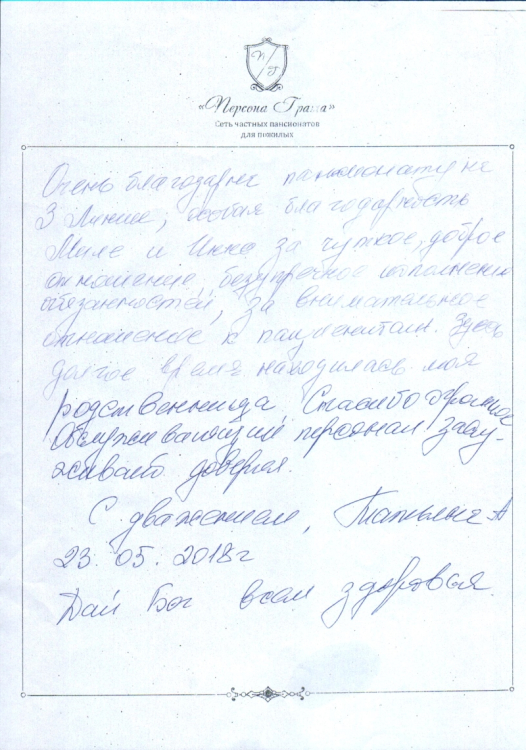 П/Г
«Персона Грата»
Сеть частных пансионатов
для пожилых
Очень благодарна пансионату на
3 Линии, особая благодарность
Миле и Инне за чуткое, доброе
отношение, безупречное исполнение
обязанностей, за внимательное
отношение к пациентам. Здесь
долгое время находилась моя
родственница. Спасибо огромное
Обслуживающий персонал заслу-
живает доверия.
С уважением, Татьяна А
23.05.2018г
Дай Бог всем здоровья.